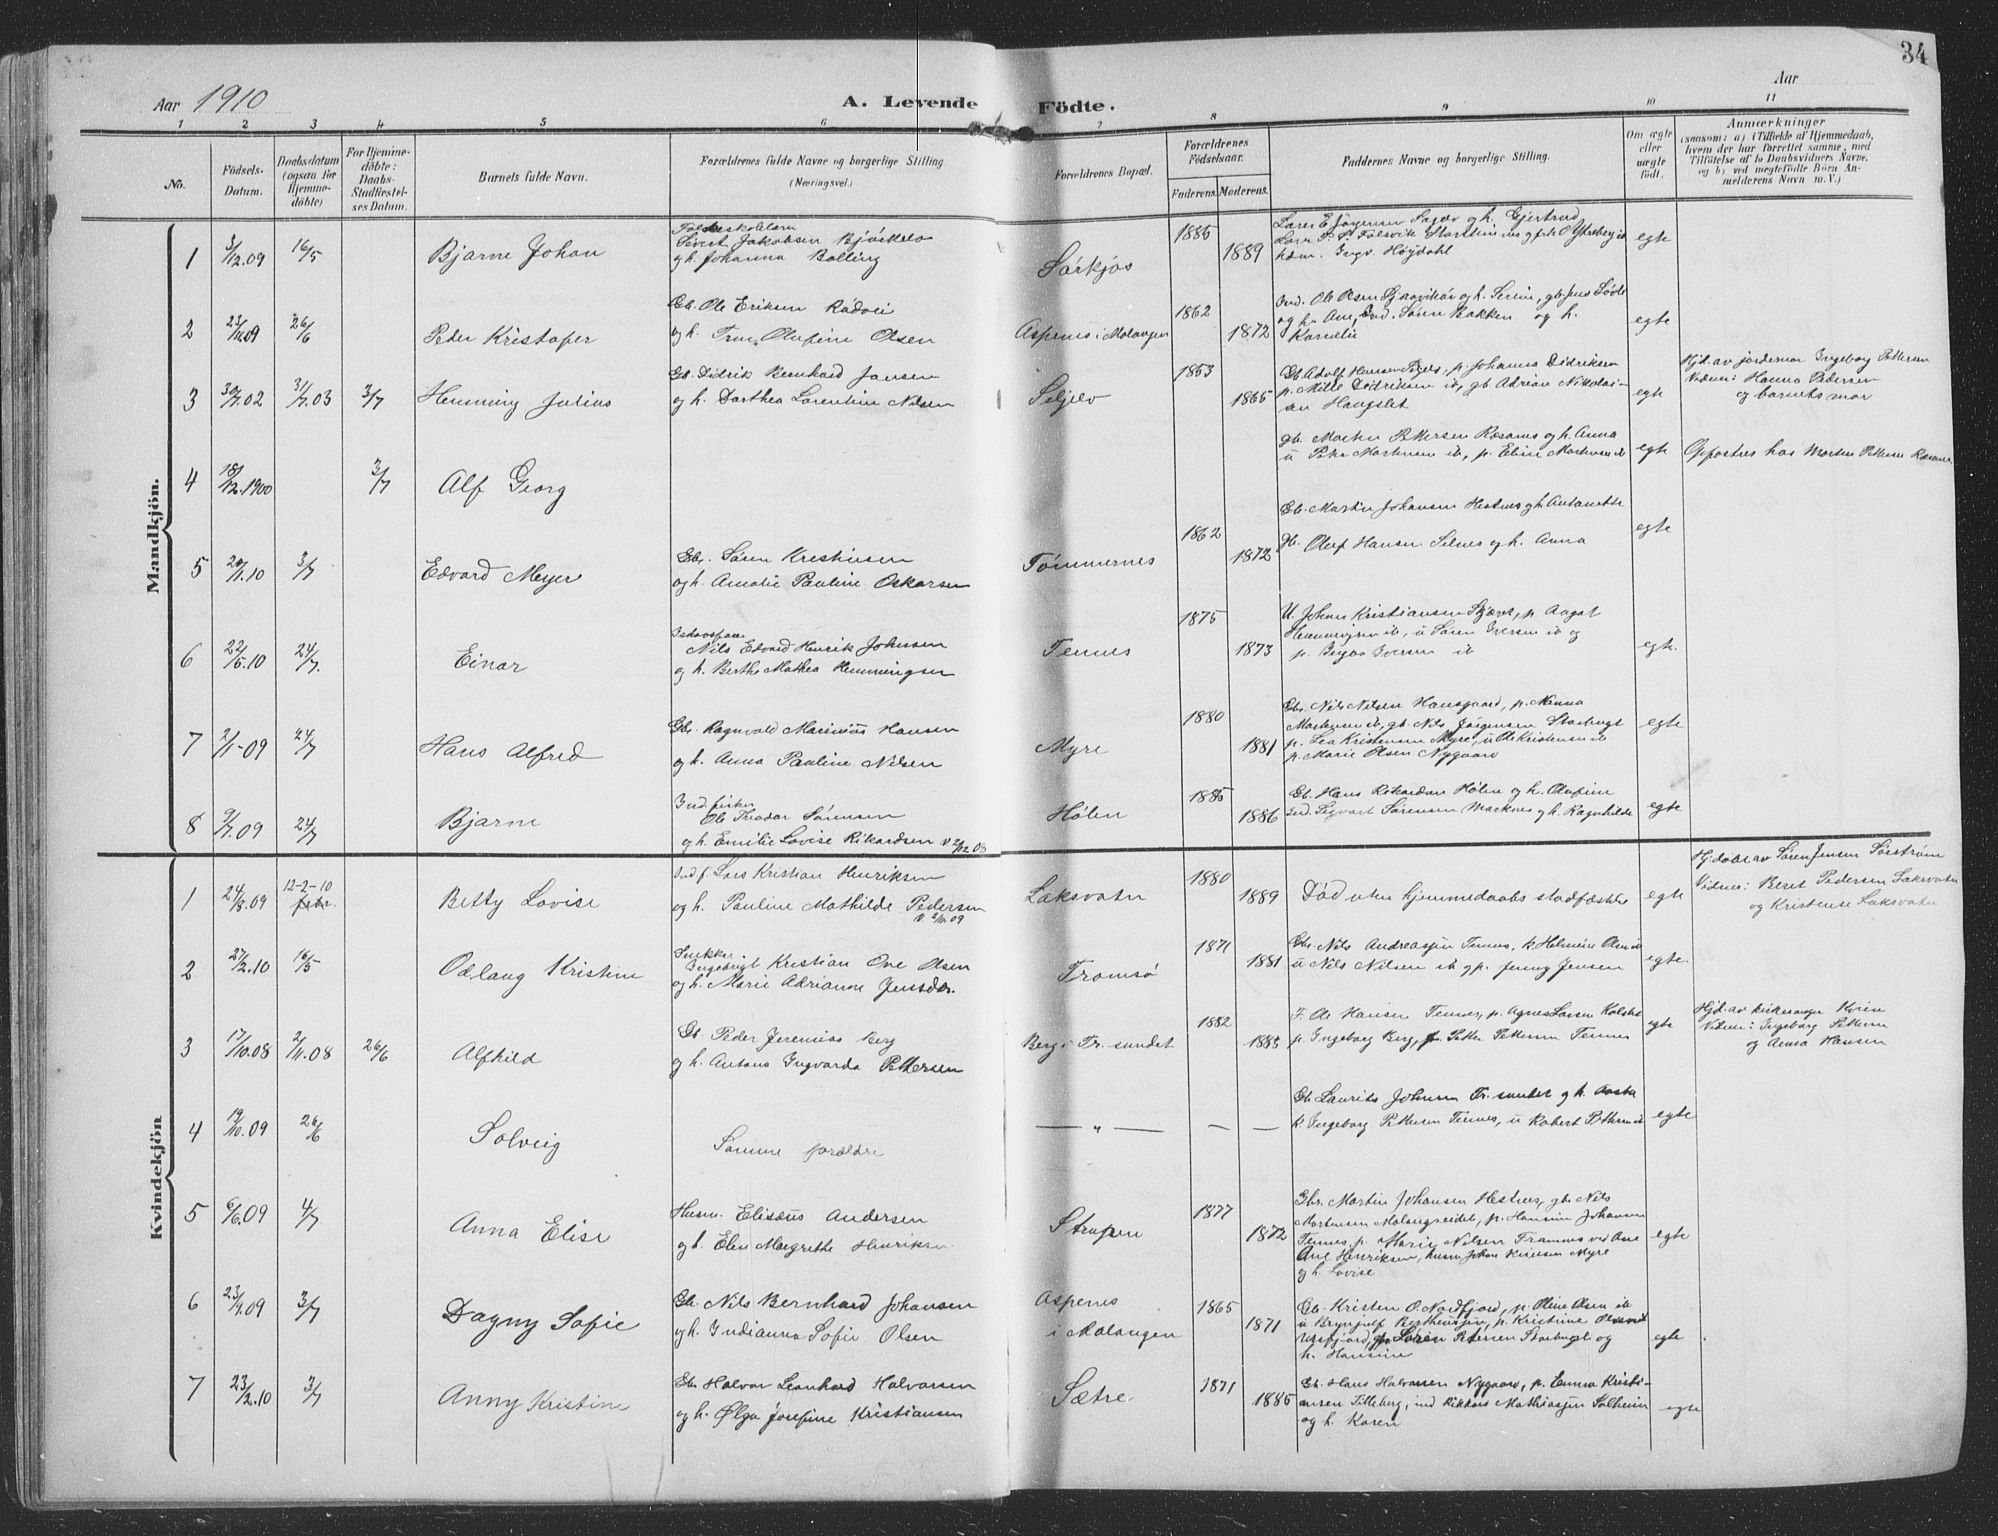 34
Aar 1910
A. Levende Födte.
Aar
1 2 3 4 5 6 7 8 9 10 11
No.
Födsels-Datum.
Daabsdatum (ogsaa for Hjemmedöbte)
For Hjemmedöbte: Daabs-Stadfæstelses Datum.
Barnets fulde Navn.
Forældrenes fulde Navne og borgerlige Stilling. (Næringsvei.)
Forældrenes Bopæl.
Forældrenes Födselsaar.
Faderens. Moderens.
Faddernes Navne og borgerlige Stilling.
Om ægte eller uægte födt.
Anmærkninger
(saasom: a) (Tilfælde af Hjemmedaab, hvem der har forrettet samme, med Tilföielse af to Daabsvidners Navne. og b) ved uegtefödte Börn Anmelderens Navn m. V.)
Mandkjön.
1 3/12.09 16/5 Bjarne Johan
Jakobsen
og h. Johanna Balling
Sørkjos
1885 1889
og h. Gjertrud
Ingv. Høydahl
egte
2 23/11.09 26/6 Peder Kristofer
Gb. Ole Eriksen
og h. Trine Olufine Olsen
Aspenes i Malangen
1862 1872
og h. Ane, Ind. Søren Bakken og h.
Kornelie
egte
3 30/7.02 31/7.03 3/7 Henning Julius
Gb. Didrik Bernhard Jansen
og h. Dorthea Lorentine Nilsen
1853 1865
Gb. Adolf Hansen, p. Johanna Didriksen
p. Mille Didriksen ib, gb Adrian Nikolaisen Haugslet
egte
Hjd. av jordemor Ingeborg Pettersen
Vidner: Hanna Pedersen
og barnets mor
4 18/12.1900 3/7 Alf Georg
gb. Morten Pettersen og h. Anna
u Peter Mortensen ib, p. Eline Mortensen ib
egte
Opfostres hos Morten Pettersen
5 20/1.10 3/7 Edvard Meyer
Gb. Søren Kristensen
og h. Amalie Pauline Oskarsen
Tømmernes
1862 1872
Gb. Martin Johansen Hestnes og h. Antonette
gb. Oluf Hansen Selnes og h. Anna
egte
6 22/5.10 24/7. Einar
Nils Edvard Henrik Johnsen
og h. Berthe Mathea Hemmingsen
Tennes
1875 1873
U. Johan Kristiansen, p. Aagot
Hemmingsen ib, u Søren Iversen ib og
p. Iversen ib
egte.
7 2/1-09 24/7 Hans Alfred
Gb. Ragnvald Marinius Hansen
og h. Anna Pauline Nilsen
Myre
1880 1881
Gbr Nils Nilsen Hansgaard, p. Nanna
Mortensen ib, gb. Nils Jørgensen
p. Lea Kristensen Myre, u Ole Kristensen ib.
p. Marie Olsen Nygaard
egte
8 9/7.09 24/7 Bjarne
Ind. fisker
Ole Theodor Sørensen
og h. Emilie Lovise Rikardsen v 2/12 08
Hølen
1885 1886
Gb. Hans Rikardsen Hølen og h. Olufine
Ind. Sigvart Sørensen Marknes og h. Ragnhilde
egte
Kvindekjön
1 24/8.09 12-2-10 Betty Lovise
Ind f. Lars Kristian Henriksen
og h. Pauline Mathilde Pedersen
v. 2/11 09
Laksvatn
1880 1889
Död uten hjemmedaabs stadfæstelse
egte
Hj.døbt av Søren Jensen Sörström
Vidner: Beret Pedersen Laksvatn
og Kristense Laksvatn
2 27/2.10 16/5 Odlaug Kristine
Snekker
Ingebrigt Kristian Ove Olsen
og h. Marie Adrianne Jensdtr.
Tromsö
1871 1881
Gb. Nils Andreassen Tennes, k. Helmine Olsen ib
u Nils Nilsen ib og p. Jenny Jensen
egte.
3 17/10.08 2/11.08 26/6 Alfhild
Gb. Peder Jeremias Berg
og h. Antona Ingvarda Pettersen
Berg i Tr. sundet
1882 1885
F. Ole Hansen Tennes, p. Agnes Larsen
p. Ingeborg Berg, Petter Pettersen Tennes
egte
Hjd. av kirkesanger Kvien
Vidner: Ingeborg Pettersen
og Anna Hansen
4 19/10.09 26/6 Solveig
Samme forældre
— „ —
— —
Gb Laurits Johnsen Tr. sundet og h.
k. Ingeborg Pettersen Tennes, u Robert Pettersen ib
egte
5 6/6.09 4/7 Anna Elise
Husm. Elisæus Andersen
og h. Elen Margrethe Henriksen
Strupen
1877 1872
Gbr. Martin Johansen Hestnes, gbr Nils
Mortensen Malangseidet, p. Hansine Johansen
Tennes, p. Marie Nilsen Framnes ved Ane
Ane Henriksen, husm Johan Myre
og h. Lovise
egte
6 23/7.09 3/7 Dagny Sofie
Gb. Nils Bernhard Johansen
og h. Indianna Sofie Olsen
Aspenes
i Malangen
1865 1871
Gb. Kristen O. Nordfjord, p. Oline Olsen ib
u Brynjulf, p. Kristine Olsen
Søren Petersen og
h. Hansine
egte
7 23/2.10 3/7 Anny Kristine
Gb. Halvor Leonhard Halvorsen
og h. Olga Josefine Kristiansen
Sætre
1871 1885
Gb. Hans Halvorsen Nygaard, p. Emma Kristiansen, ind Rikkart Mathiassen Solheim
og h. Karen
egte